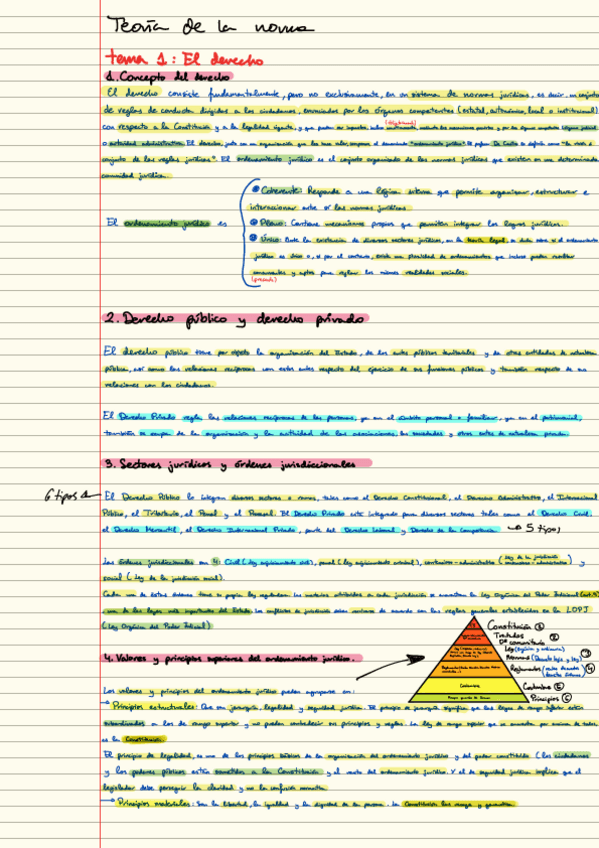 Teoría de la norma
tema 1: El derecho
1. Concepto del derecho
El derecho consiste fundamentalmente, pero no exclusivamente, en un sistema de normas jurídicas, es decir, un conjunto
de reglas de conducta dirigidas a los ciudadanos, enunciadas por los órganos competentes (estatal, autonómico, local o institucional)
con respecto a la Constitución y a la legalidad vigente, y que pueden ser impuestas
o autoridad administrativa. El derecho, junto con la organización que las hace valer, compone el denominado "ordenamiento jurídico". De Castro lo define como "la
conjunto de las reglas jurídicas". El ordenamiento jurídico es el conjunto organizado de las normas jurídicas que existen en una determinada
comunidad jurídica.
El ordenamiento jurídico es
Coherente: Responde a una lógica interna que permite organizar, estructurar e
interaccionar entre sí las normas jurídicas.
Pleno: Contiene mecanismos propios que permiten integrar las lagunas jurídicas.
Único: Ante la existencia de diversos sectores jurídicos, en la teoría legal, se duda sobre si el ordenamiento
jurídico es único o, si por el contrario, existe una pluralidad de ordenamientos que incluso pueden resultar
concurrentes y aptos para reglar las mismas realidades sociales.
2. Derecho público y derecho privado
El derecho público tiene por objeto la organización del Estado, de los entes públicos territoriales y de otras entidades de naturaleza
pública, así como las relaciones recíprocas con estos entes respecto del ejercicio de sus funciones públicas y también respecto de sus
relaciones con los ciudadanos.
El Derecho Privado regla las relaciones recíprocas de las personas, ya en el ámbito personal o familiar, ya en el patrimonial,
también se ocupa de la organización y la actividad de las asociaciones, las sociedades y otros entes de naturaleza privada.
3. Sectores jurídicos y órdenes jurisdiccionales
6 tipos
El Derecho Público lo integran diversos sectores o ramas, tales como el Derecho Constitucional, el Derecho Administrativo, el Internacional
Público, el Tributario, el Penal y el Procesal. El Derecho Privado está integrado para diversos sectores tales como el Derecho Civil,
el Derecho Mercantil, el Derecho Internacional Privado, parte del Derecho Laboral y Derecho de la Competencia. → 5 tipos
Los órdenes jurisdiccionales son 4: Civil (ley enjuiciamiento civil), penal (ley enjuiciamiento criminal), contencioso-administrativo (ley de la jurisdicción contencioso-administrativa) y
social (Ley de la jurisdicción social).
Cada uno de estos órdenes tiene su propia ley reguladora. Las materias atribuidas a cada jurisdicción se encuentran la Ley Orgánica del Poder Judicial
una de las leyes más importantes del Estado. Los conflictos de jurisdicción serán resueltos de acuerdo con las reglas generales establecidas en la LOPJ
(Ley Orgánica del Poder Judicial)
4. Valores y principios superiores del ordenamiento jurídico.
Constitución ①
Tratados ②
Dº comunitario
Ley (orgánica y ordinaria)
Normas (Decreto ley y leg) ③
Reglamentos ④
Costumbre ⑤
Principios ⑥
Costumbre
Los valores y principios del ordenamiento jurídico pueden agruparse en:
→ Principios estructurales: Que son jerarquía, legalidad y seguridad jurídica. El principio de jerarquía significa que las leyes de rango inferior están
subordinadas a las de rango superior y no pueden contradecir sus principios y reglas. La ley de rango superior que se encuentra por encima de todas
es la Constitución.
El principio de legalidad, es uno de los principios básicos de la organización del ordenamiento jurídico y del poder constituido (los ciudadanos
y los poderes públicos están sometidos a la Constitución y al resto del ordenamiento jurídico. Y el de seguridad jurídica implica que el
legislador debe perseguir la claridad y no la confusión normativa.
→ Principios materiales: Son la libertad, la igualdad y la dignidad de la persona. La Constitución las recoge y garantiza.